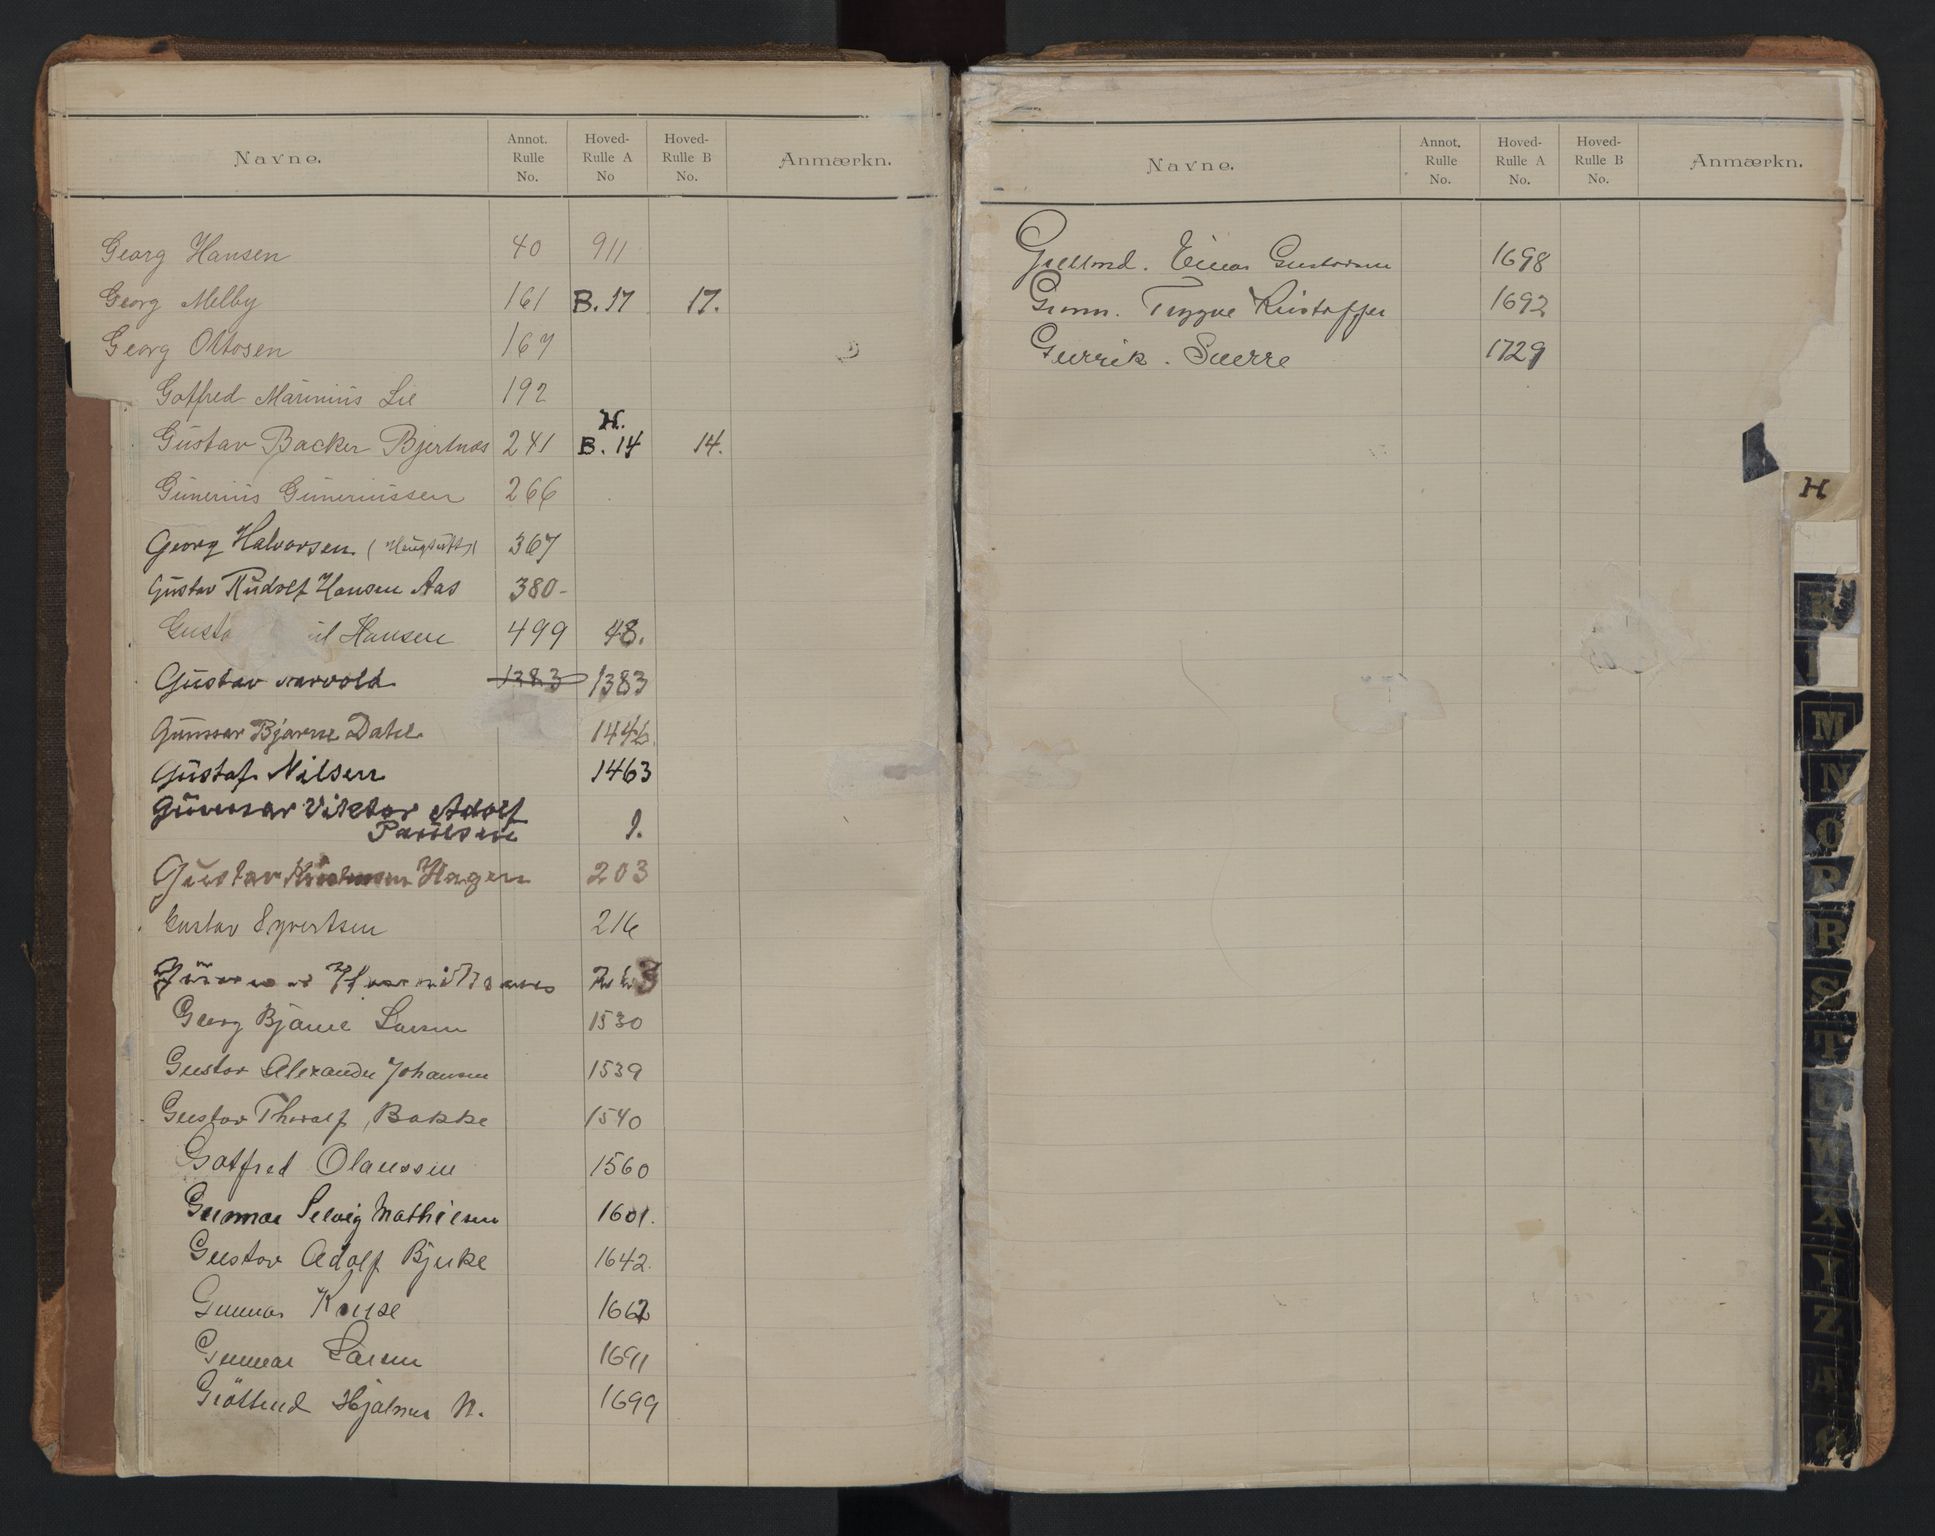 Navne. Annot. Rulle No. Hoved-Rulle A No Hoved-Rulle B No. Anmærkn.
Georg Hansen 40 911
Georg Melby 161 B. 17 17.
Georg Ottosen 167
Gotfred Marinius Lie 192
H.
Gustav Backer Bjertnæs 241 B. 14 14.
Gunerius Guneriussen 266
Georg Halvorsen 367
Gustav Rudolf Hansen Aas 380-
Hansen 499 48.
Gustav 1383 1383
Gunnar Bjarne Dahl 1446.
Gustaf Nilsen 1463
Gunnar Viktor Adolf
Paulsen 1.
Gustav Hagen 203
Gustav Syvertsen 216
Georg Bjarne Larsen 1530
Gustav Alexander Johansen 1539
Gustav Thoralf Bakke 1540
Gotfred Olaussen 1560
Gunnar Selvig Mathiesen 1601.
Gustav Adolf Bjerke 1642.
Gunnar Kruse 1662
Gunnar Larsen 1691
Hjalmar N. 1699
Navne. Annot. Rulle No. Hoved-Rulle A No. Hoved-Rulle B No. Anmærkn.
Einar Gustavsen 1698
Trygve Kristoffer 1692
Sverre 1729
H
K
L
M
N
O
P
R
S
T
U
W
X
Y
Z